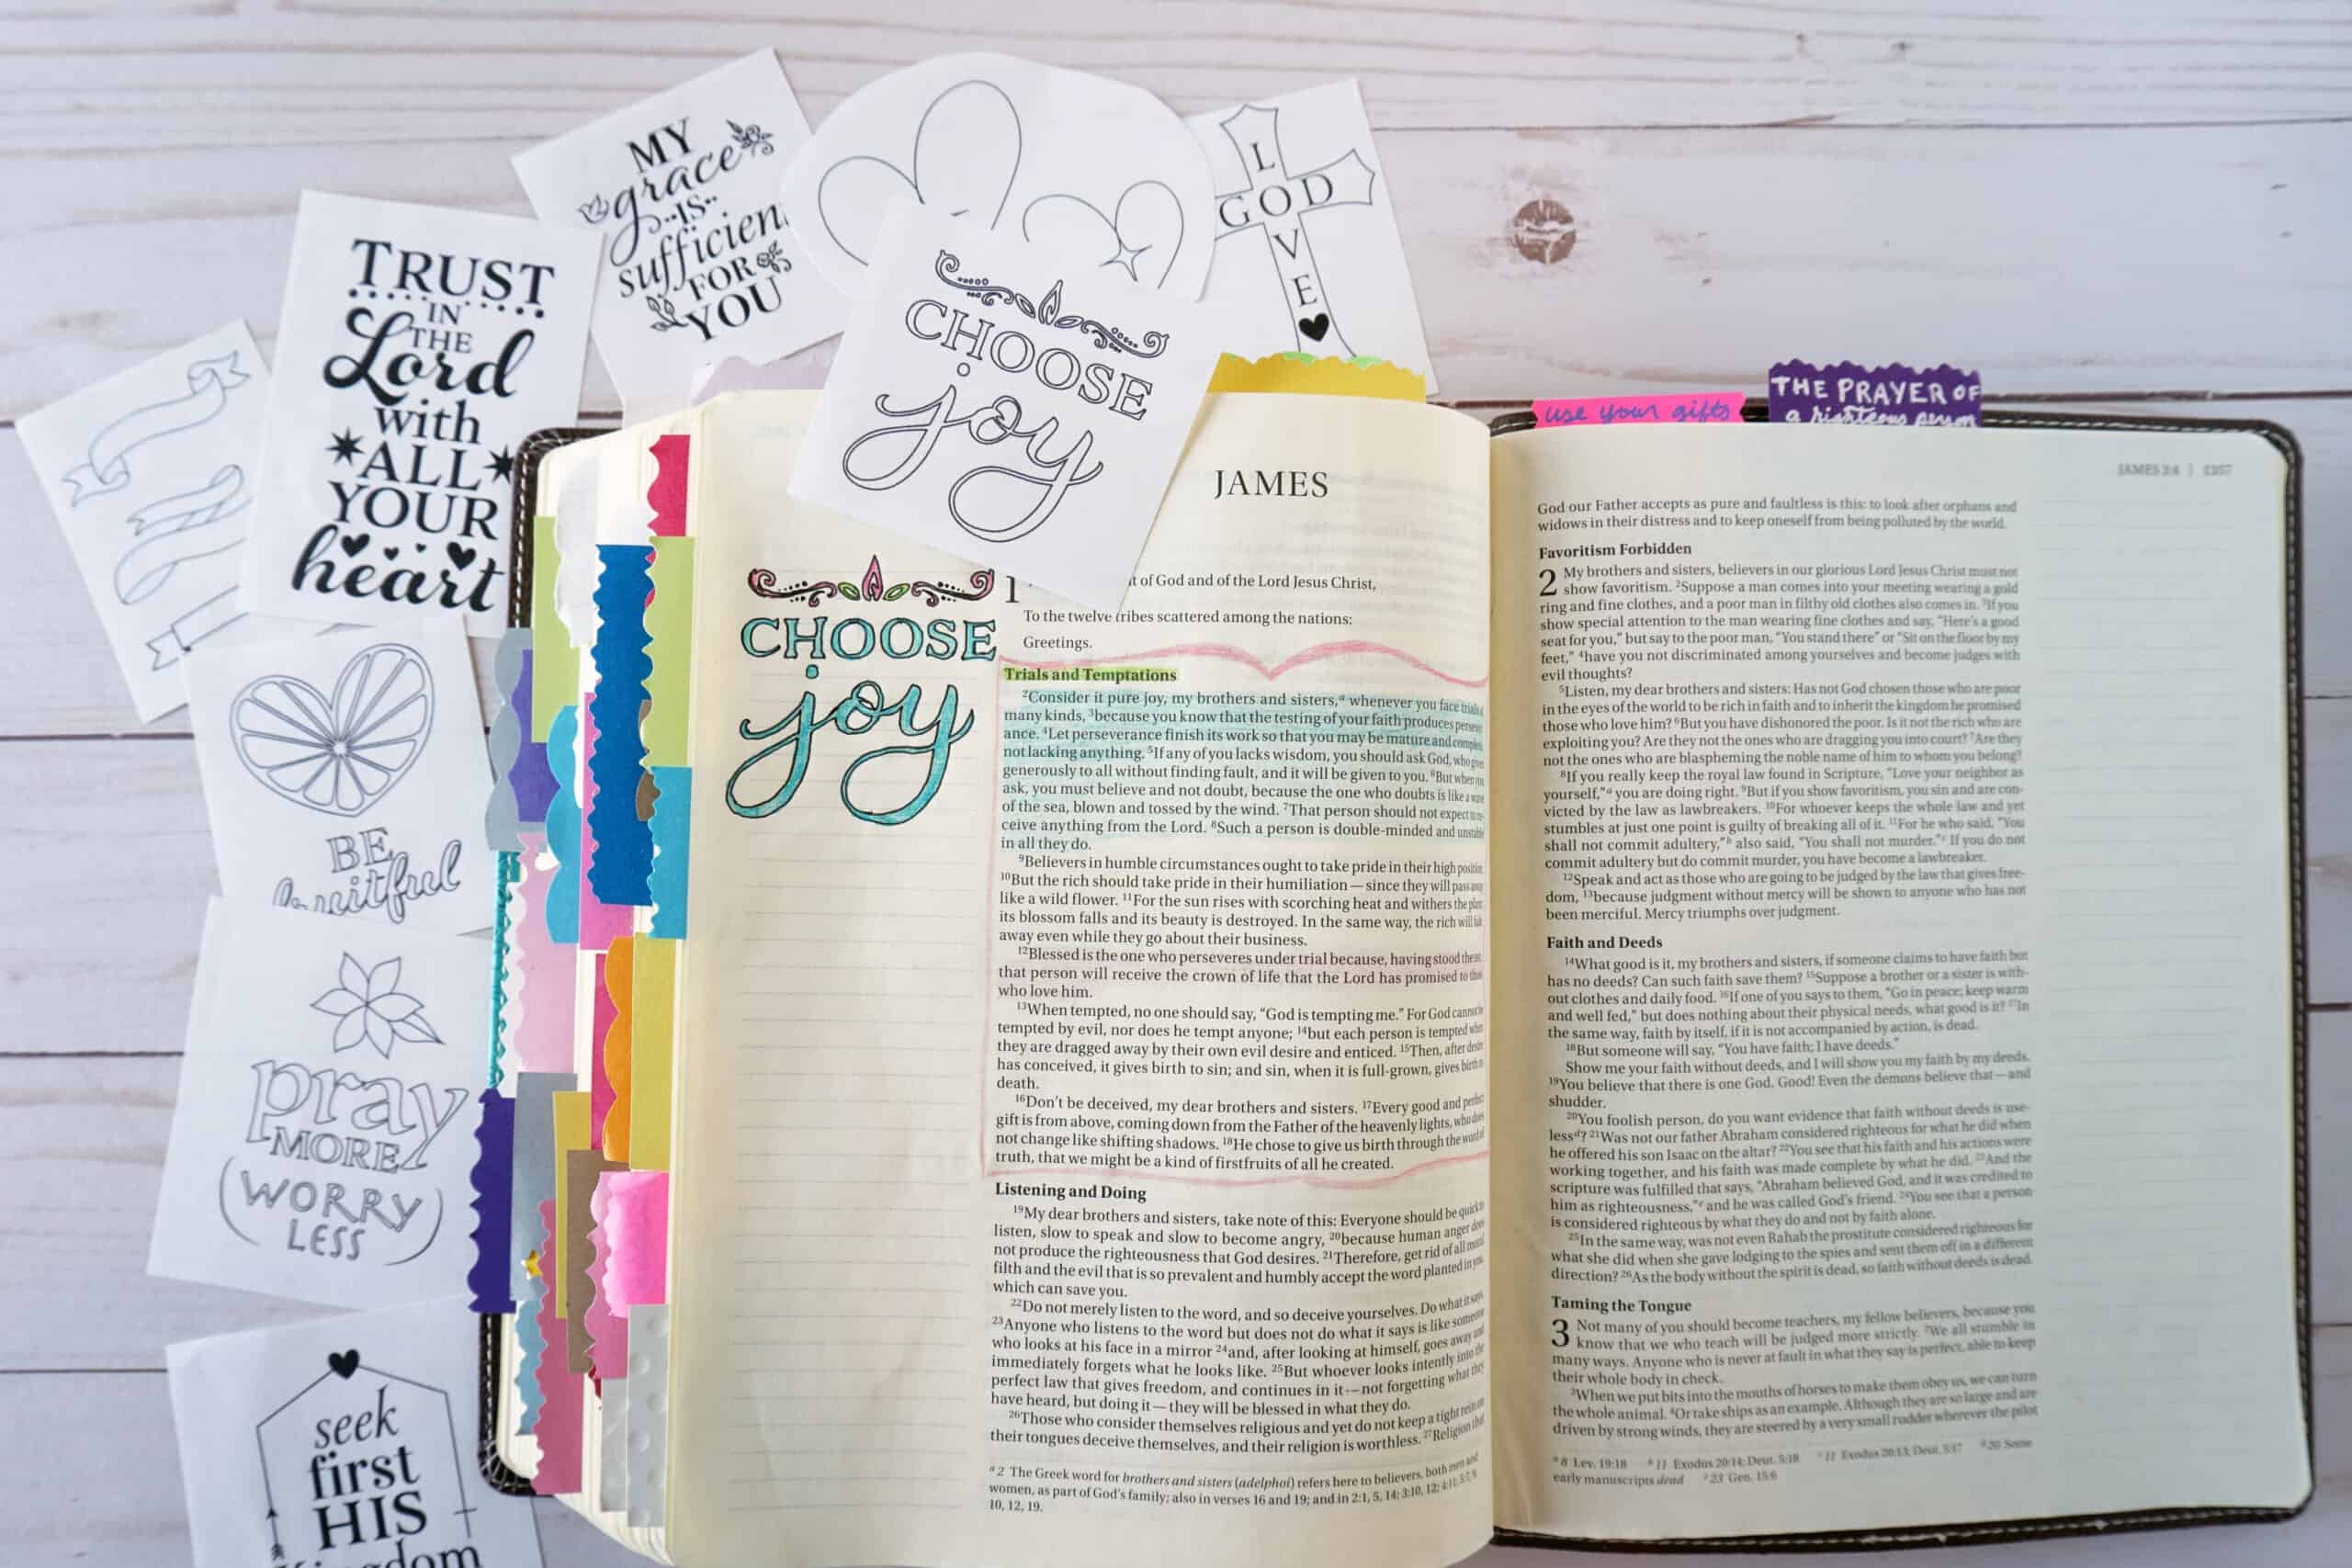 MY
grace
..IS..
FOR
YOU
TRUST
IN
THE
Lord
with
ALL
YOUR
heart
CHOOSE
joy
L
GOD
V
E
BE
pray
MORE
(WORRY
LESS)
seek
first
HIS
use your gifts
THE PRAYER OF
a righteous person
CHOOSE
joy
JAMES
1
of God and of the Lord Jesus Christ,
To the twelve tribes scattered among the nations:
Greetings.
Trials and Temptations
²Consider it pure joy, my brothers and sisters,ᵃ whenever you face trials
many kinds, ³because you know that the testing of your faith produces
ance. ⁴Let perseverance finish its work so that you may be mature and
not lacking anything. ⁵If any of you lacks wisdom, you should ask God, who gives
generously to all without finding fault, and it will be given to you. ⁶But when you
ask, you must believe and not doubt, because the one who doubts is like a wave
of the sea, blown and tossed by the wind. ⁷That person should not expect
ceive anything from the Lord. ⁸Such a person is double-minded and unstable
in all they do.
⁹Believers in humble circumstances ought to take pride in their high position.
¹⁰But the rich should take pride in their humiliation — since they will pass away
like a wild flower. ¹¹For the sun rises with scorching heat and withers the plant
its blossom falls and its beauty is destroyed. In the same way, the rich will
away even while they go about their business.
¹²Blessed is the one who perseveres under trial because, having stood the
that person will receive the crown of life that the Lord has promised to
who love him.
¹³When tempted, no one should say, “God is tempting me.” For God cannot
tempted by evil, nor does he tempt anyone; ¹⁴but each person is tempted when
they are dragged away by their own evil desire and enticed. ¹⁵Then, after desire
has conceived, it gives birth to sin; and sin, when it is full-grown, gives birth
death.
¹⁶Don’t be deceived, my dear brothers and sisters. ¹⁷Every good and perfect
gift is from above, coming down from the Father of the heavenly lights, who does
not change like shifting shadows. ¹⁸He chose to give us birth through the word of
truth, that we might be a kind of firstfruits of all he created.
Listening and Doing
¹⁹My dear brothers and sisters, take note of this: Everyone should be quick to
listen, slow to speak and slow to become angry, ²⁰because human anger does
not produce the righteousness that God desires. ²¹Therefore, get rid of all moral
filth and the evil that is so prevalent and humbly accept the word planted in you,
which can save you.
²²Do not merely listen to the word, and so deceive yourselves. Do what it says.
²³Anyone who listens to the word but does not do what it says is like someone
who looks at his face in a mirror ²⁴and, after looking at himself, goes away and
immediately forgets what he looks like. ²⁵But whoever looks intently into the
perfect law that gives freedom, and continues in it — not forgetting what they
have heard, but doing it — they will be blessed in what they do.
²⁶Those who consider themselves religious and yet do not keep a tight rein on
their tongues deceive themselves, and their religion is worthless. ²⁷Religion that
ᵃ 2 The Greek word for brothers and sisters (adelphoi) refers here to believers, both men and
women, as part of God’s family; also in verses 16 and 19; and in 2:1, 5, 14; 3:10, 12; 4:11; 5:7, 9,
10, 12, 19.
JAMES 3:4 | 1357
God our Father accepts as pure and faultless is this: to look after orphans and
widows in their distress and to keep oneself from being polluted by the world.
Favoritism Forbidden
2 My brothers and sisters, believers in our glorious Lord Jesus Christ must not
show favoritism. ²Suppose a man comes into your meeting wearing a gold
ring and fine clothes, and a poor man in filthy old clothes also comes in. ³If you
show special attention to the man wearing fine clothes and say, “Here’s a good
seat for you,” but say to the poor man, “You stand there” or “Sit on the floor by my
feet,” ⁴have you not discriminated among yourselves and become judges with
evil thoughts?
⁵Listen, my dear brothers and sisters: Has not God chosen those who are poor
in the eyes of the world to be rich in faith and to inherit the kingdom he promised
those who love him? ⁶But you have dishonored the poor. Is it not the rich who are
exploiting you? Are they not the ones who are dragging you into court? ⁷Are they
not the ones who are blaspheming the noble name of him to whom you belong?
⁸If you really keep the royal law found in Scripture, “Love your neighbor as
yourself,”ᵃ you are doing right. ⁹But if you show favoritism, you sin and are con-
victed by the law as lawbreakers. ¹⁰For whoever keeps the whole law and yet
stumbles at just one point is guilty of breaking all of it. ¹¹For he who said, “You
shall not commit adultery,”ᵇ also said, “You shall not murder.”ᶜ If you do not
commit adultery but do commit murder, you have become a lawbreaker.
¹²Speak and act as those who are going to be judged by the law that gives free-
dom, ¹³because judgment without mercy will be shown to anyone who has not
been merciful. Mercy triumphs over judgment.
Faith and Deeds
¹⁴What good is it, my brothers and sisters, if someone claims to have faith but
has no deeds? Can such faith save them? ¹⁵Suppose a brother or a sister is with-
out clothes and daily food. ¹⁶If one of you says to them, “Go in peace; keep warm
and well fed,” but does nothing about their physical needs, what good is it? ¹⁷In
the same way, faith by itself, if it is not accompanied by action, is dead.
¹⁸But someone will say, “You have faith; I have deeds.”
Show me your faith without deeds, and I will show you my faith by my deeds.
¹⁹You believe that there is one God. Good! Even the demons believe that — and
shudder.
²⁰You foolish person, do you want evidence that faith without deeds is use-
lessᵈ? ²¹Was not our father Abraham considered righteous for what he did when
he offered his son Isaac on the altar? ²²You see that his faith and his actions were
working together, and his faith was made complete by what he did. ²³And the
scripture was fulfilled that says, “Abraham believed God, and it was credited to
him as righteousness,”ᵉ and he was called God’s friend. ²⁴You see that a person
is considered righteous by what they do and not by faith alone.
²⁵In the same way, was not even Rahab the prostitute considered righteous for
what she did when she gave lodging to the spies and sent them off in a different
direction? ²⁶As the body without the spirit is dead, so faith without deeds is dead.
Taming the Tongue
3 Not many of you should become teachers, my fellow believers, because you
know that we who teach will be judged more strictly. ²We all stumble in
many ways. Anyone who is never at fault in what they say is perfect, able to keep
their whole body in check.
³When we put bits into the mouths of horses to make them obey us, we can turn
the whole animal. ⁴Or take ships as an example. Although they are so large and are
driven by strong winds, they are steered by a very small rudder wherever the pilot
ᵃ 8 Lev. 19:18 ᵇ 11 Exodus 20:14; Deut. 5:18 ᶜ 11 Exodus 20:13; Deut. 5:17 ᵈ 20 Some
early manuscripts dead ᵉ 23 Gen. 15:6